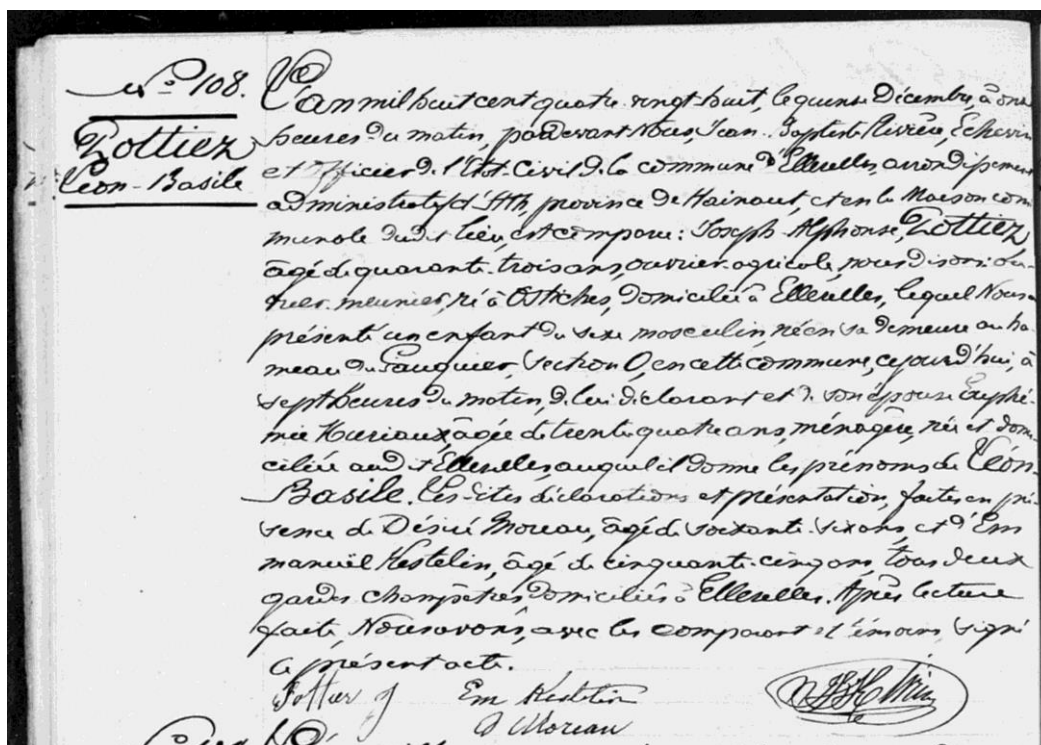 N° 108.
Pottiez
Léon-Basile
L'an mil huit cent quatre-vingt-huit, le quinze Décembre, à onze
heures du matin, pardevant Nous, Jean-Baptiste Rivière, Echevin
et Officier de l'Etat-Civil de la commune d'Ellezelles, arrondissement
administratif d'Ath, province de Hainaut, et en la Maison com
munale dudit lieu, est comparu: Joseph-Alphonse, Pottiez,
âgé de quarante-trois ans, ouvrier-agricole, nous disons: ou-
vrier-meunier, né à Ostiches, domicilié à Ellezelles, lequel Nous a
présenté un enfant du sexe masculin, né en sa demeure au ha
meau du section en cette commune, cejourd'hui, à
sept heures du matin, de lui déclarant et de son épouse Euphé-
mie Huriaux, âgée de trente quatre ans, ménagère, née et domi
ciliée audit Ellezelles, auquel il donne les prénoms de Léon-
Basile. Les dites déclarations et présentation, faites en pré-
sence de Désiré Moreau, âgé de soixante-six ans, et d'Em
manuël Kestelin, âgé de cinquante-cinq ans, tous deux
gardes champêtres domiciliés à Ellezelles. Après lecture
faite, Nous avons, avec les comparant et témoins, signé
le présent acte.
Pottiez J Em Kestelin
D Moreau